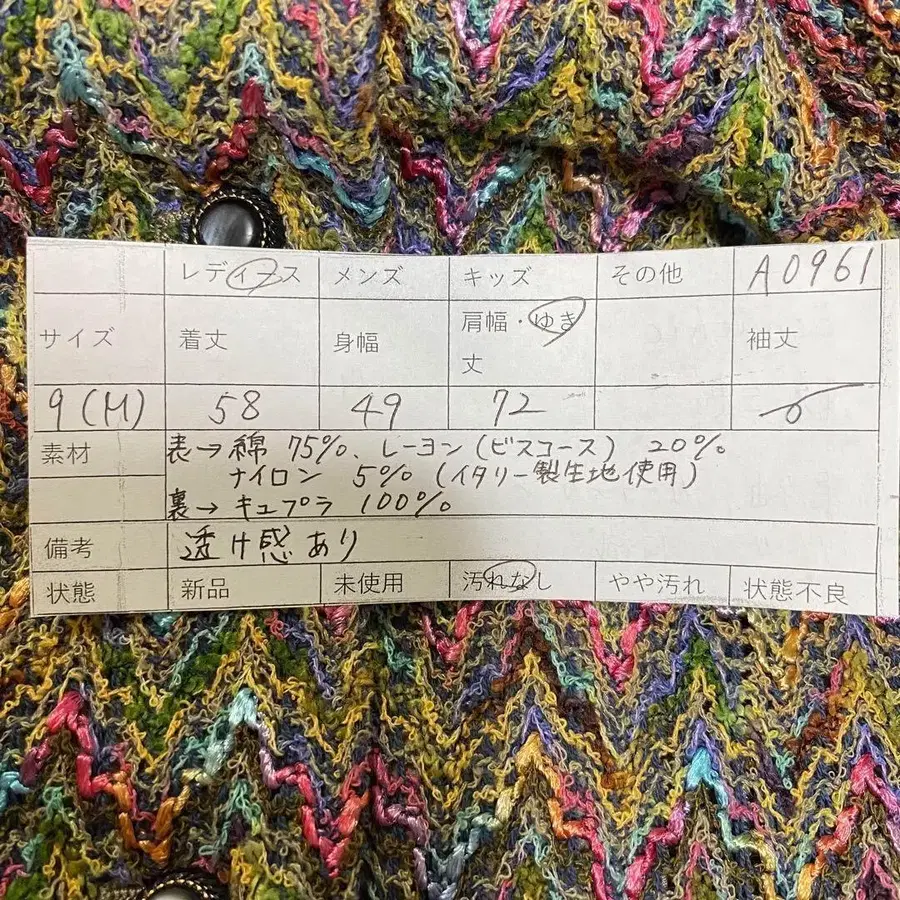 レディース メンズ キッズ その他 A0961
サイズ 着丈 身幅 肩幅・ゆき丈 袖丈
9(M) 58 49 72
素材 表→綿 75%、レーヨン(ビスコース) 20%
ナイロン 5% (イタリー製生地使用)
裏→キュプラ 100%
備考 透け感あり
状態 新品 未使用 汚れなし やや汚れ 状態不良